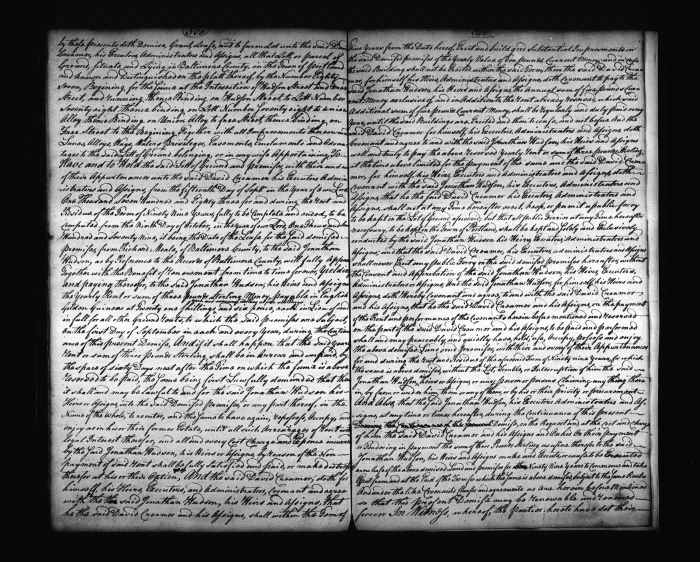 by these presents doth Demise, Grant, Lease, and to farm let unto the said David
Creamer, his Executors, Administrators and Assigns, all that Lott or parcel of
Ground, situate and Lying in Baltimore County, in the Town of
and known and Distinguished on the platt thereof, by the Number Eighty
Seven, Beginning for the same at the Intersection of Hudson Street and
Street, and running thence Binding, on Hudson Street to Lott Number
Seventy eight Thence binding, on Lott Number Seventy eight to Union
Alley thence Binding, on Union Alley to Street, thence Binding, on
Street to the Beginning, Together with all Improvements thereon
Lanes Alleys, Ways, Waters, Priviledges, Easements, Emoluments and Advan-
tages to the said Lott of Ground belonging, or in any wise Appertaining To
Have and to Hold the said Lott of Ground and premises, with them and
of their Appurtenances unto the said David Creamer his Executors Admin-
istrators and Assigns, from the fifteenth Day of Sept in the year of our Lord
One Thousand Seven Hundred and Eighty three for and during the Rest and
Residue of the Term of Ninety Nine Years, fully to be Compleat and ended, to be
computed from the Ninth Day of October, in the year of our Lord, One Thousand
Hundred and Seventy Nine, it being the date of the Lease for the said
Premises, from Meale, of Baltimore County, to the said Jonathan
Hudson, as by Reference to the Records of Baltimore County, will fully Appear
Together with the Benefit of Renewment from time to time forever, Yielding
and paying therefor, to the said Jonathan Hudson, his Heirs and Assigns
the Yearly Rent or sum of three pounds Sterling Money, payable in English
Golden Guineas at Twenty one Shillings and six pence, each in lieu of and
in full for all other Ground rents, to which the said Premises are subject,
On the first Day of September in each and every Year, during the Contin-
uance of this present Demise, And if it shall happen that the said yearly
Rent or sum of three pounds Sterling, shall be in arrear and unpaid, by
the space of sixty Days next after the time on which the same is above
reserved to be paid, the same being first Lawfully demanded that then
it shall and may be lawful to and for the said Jonathan Hudson his
Heirs or Assigns, into the said Demised Premises, or any part thereof, in the
Name of the whole, to reenter, and the same to have again, repossess, Occupy, and
enjoy as in his or their former Estate, until all such Arrearages of Rent and
legal Interest therefor, and all and every Cost Charge and Expence incurred
by the said Jonathan Hudson, his Heirs or Assigns by reason of the Non
payment of said Rent shall be fully satisfied and paid, or made out
thereof at his or their Option, And the said David Creamer, doth for
himself his Heirs Executors, and Administrators, Covenant and agree
with the said Jonathan Hudson, his Heirs and Assigns, that
he the said David Creamer and his Assigns, shall within the Term of
five Years from the Date hereof, Erect and build good Substantial Improvements on
the said Demised premises of the Yearly Value of Ten pounds Current Money, and in case
the said Building shall not be Erected within the said Term then the said David Crea-
mer, for himself his Heirs, Administrators and Assigns doth Covenant to pay to the
said Jonathan Hudson, his Heirs and Assigns, the Annual sum of four pounds Cur-
rent Money exclusive of, and in Addition to the Rent already reserved, which said
Additional sum of four pounds Current Money, is to be regularly and duly paid every
year, until the said Buildings are Erected and then to cease, and not before And the
said David Creamer for himself, his Executors, Administrators and Assigns doth
Covenant and agree to and with the said Jonathan Hudson, his Heirs and Assigns
well and truly to pay the above reserved Yearly Rent or sum of three pounds Sterling
at the time above limited for the payment of the same and the said David Crea-
mer, for himself, his Heirs, Executors and Administrators and Assigns, doth
Covenant with the said Jonathan Hudson, his Executors, Administrators and
Assigns, that he the said David Creamer his Executors, Administrators and
Assigns, shall not at any time hereafter seek, keep, or permit a publick ferry
to be kept on the Lott of Ground, aforesaid, but that all publick Ferries at any time hereafter
necessary, to be kept on the Town of Portland, shall be kept and solely and Exclusively
conducted by the said Jonathan Hudson his Heirs, Executors Administrators or
Assigns, and that the said David Creamer his Executors Administrators or Assigns
shall make not any publick Ferry on the said Demised premises hereafter, without
the Consent and Approbation of the said Jonathan Hudson, his Heirs, Executors,
Administrators and Assigns, And the said Jonathan Hudson, for himself, his Heirs and
Assigns, doth hereby Covenant and agree, to and with the said David Creamer
and his Assigns, that he the said David Creamer and his Assigns, on the payment
of the Rent and performance of the Covenants herein before mentioned and reserved
on the part of the said David Creamer and his Assigns, to be paid and performed
shall and may peaceably and quietly have, hold, use, Occupy, possess and enjoy
the above demised Land and premises, with their and every of their Appurtenances
for and during the rest and Residue of the aforesaid Term of Ninety nine Years, for which
the same is above demised, without the Let, Trouble, or Interruption of him the said
Jonathan Hudson, heirs or Assigns, or any person or persons Claiming any thing there-
in, by from or under him, them, or any of them, or by his or their privity or procurement
And also, that the said Jonathan Hudson, his Heirs Executors Administrators and As-
signs, at any time or times hereafter, during the Continuance of this present
Demise, on the Request and at the cost and charge
of him the said David Creamer and his Assigns and Upon his or their payment
or Tendering in hand the
Jonathan Hudson, his Heirs and Assigns make and Execute or cause to be Executed
a new lease of the above demised Land and premises for Ninety Nine Years to Commence and take
Effect from and at the End of the Term for which the same is above demised, subject to the same Rents
And under the like Covenants, Clauses and agreements as are herein before Mentioned
so that this present Demise may be renewable and renewed
forever In Witness, whereof, the Parties hereto have set their